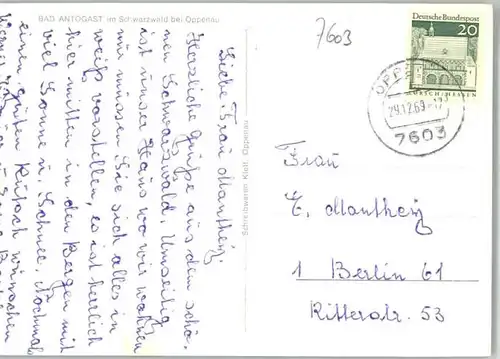 BAD ANTOGAST im Schwarzwald bei Oppenau
Liebe Frau Mantheiz,
Herzliche Grüße aus dem schö-
nen Schwarzwald. Umseitig
ist unser Haus wo wir wohnen
nur müssen Sie sich alles in
weiß vorstellen, es ist herrlich
hier mitten in den Bergen mit
viel Sonne u. Schnee. Nochmals
einen guten Rutsch wünschen
Schreibwaren Klett, Oppenau
7603
Deutsche Bundespost
20
LORSCH/HESSEN
OPPENAU
29.12.69-17
7603
Frau
E. Mantheiz
1 Berlin 61
Ritterstr. 53